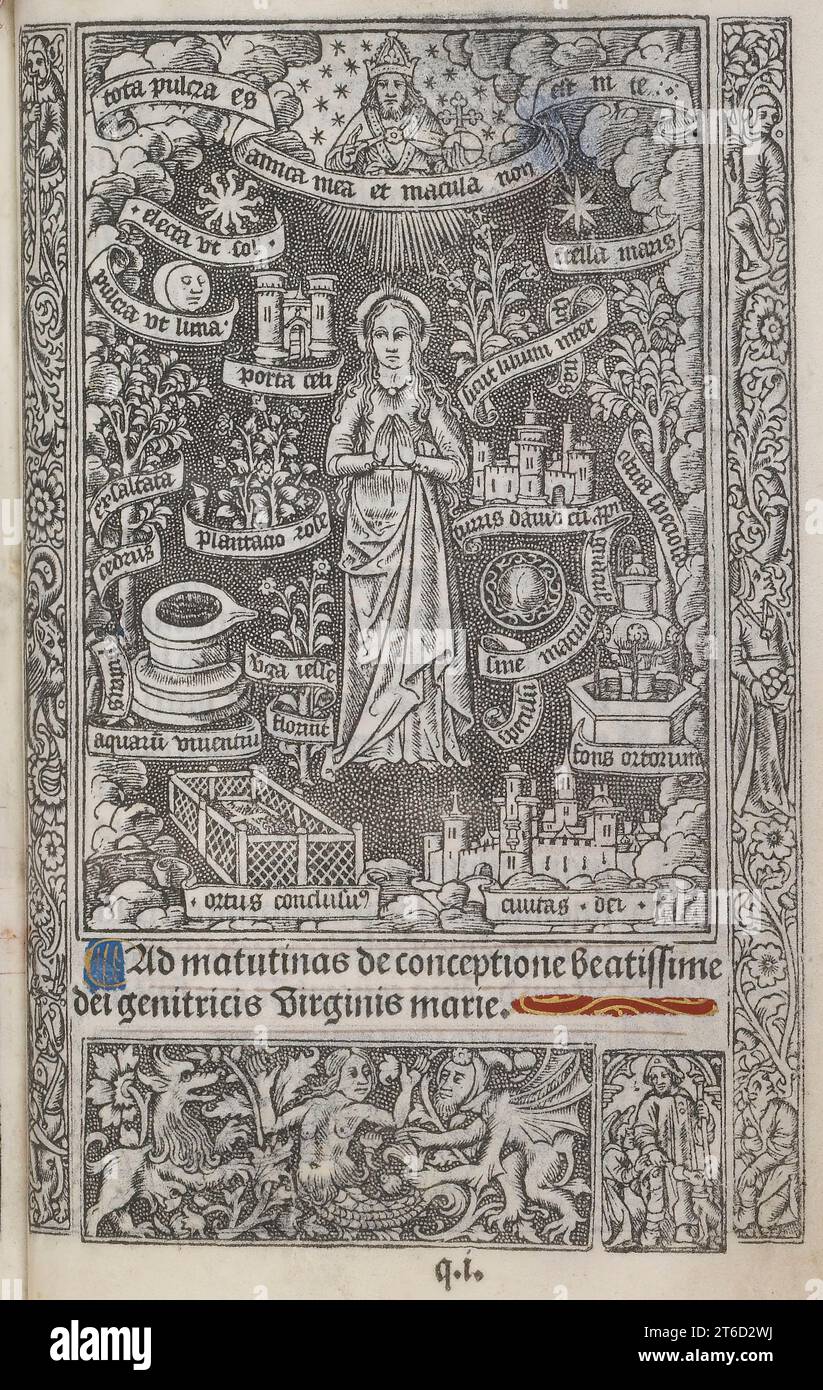 tota pulcra es
est in te
amica mea et macula non
electa vt sol
stella maris
pulcra vt luna
porta celi
sicut lilium inter
exaltata
cedrus
plantacio rose
turris dauid cu
oliua speciosa
sine macula
speculū
virga iesse
floruit
puteus
aquarū viuentiū
fons ortorum
ortus conclusus
ciuitas dei
Ad matutinas de conceptione beatissime
dei genitricis Virginis marie.
q.i.
alamy
Image ID: 2T6D2WJ
www.alamy.com